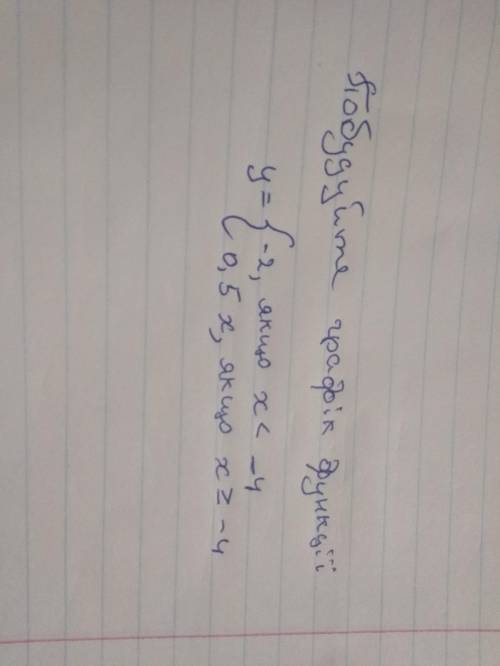 Побудуйте графік функції
y = { -2, якщо x < -4
0,5 x, якщо x ≥ -4